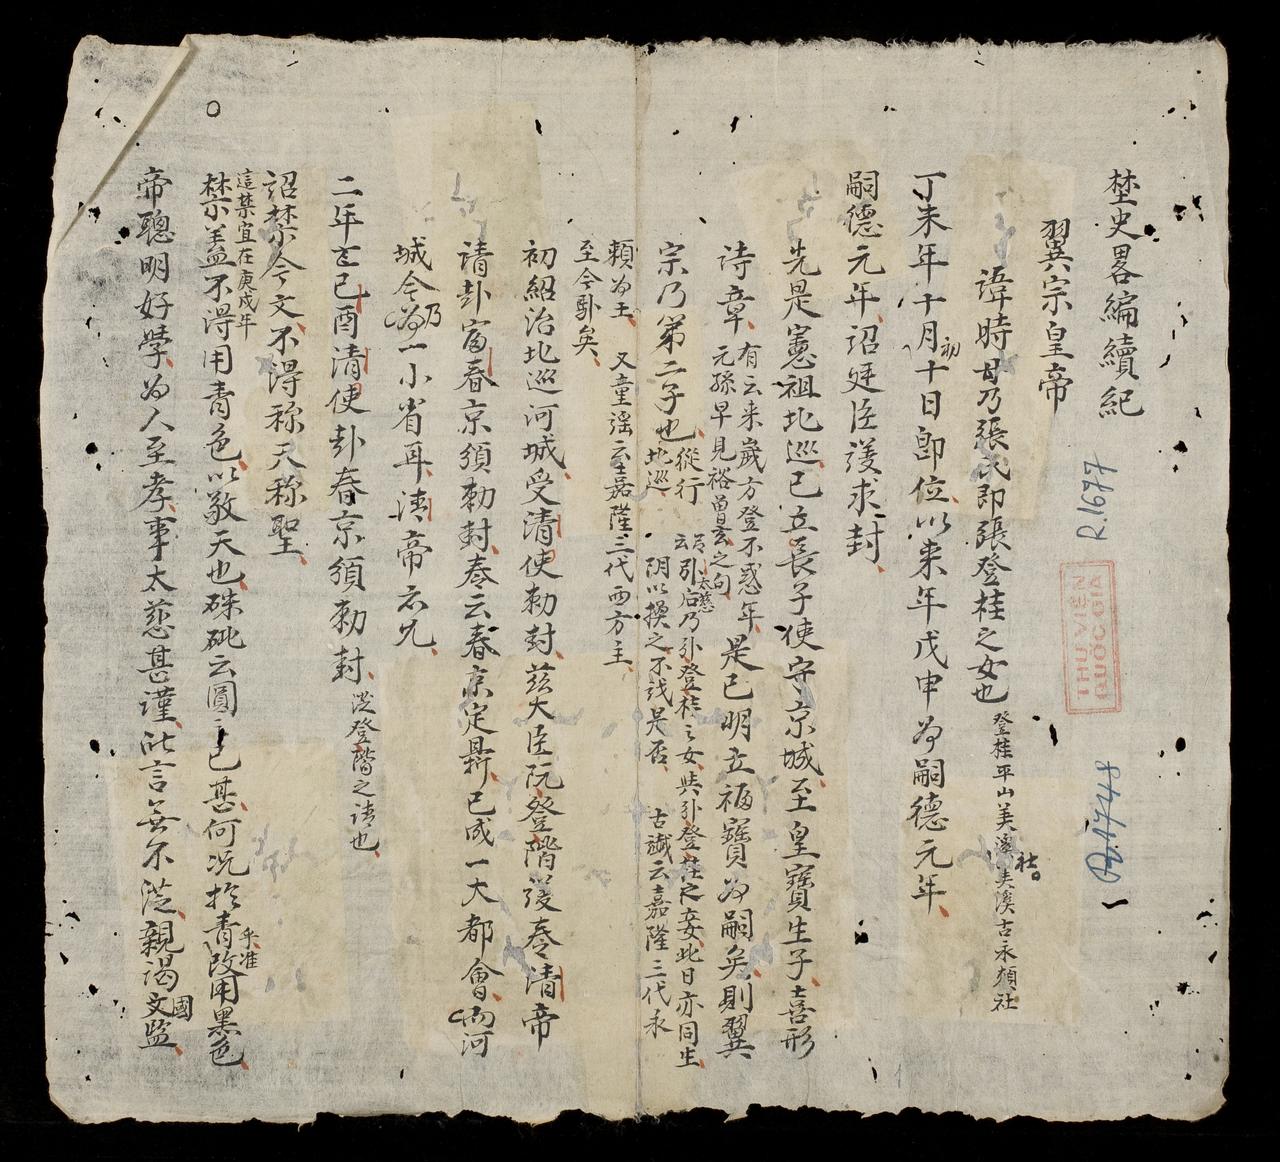 埜史畧編續紀
翼宗皇帝
諱時母乃張氏即張登桂之女也
登桂平山美溪社美溪古永頻社
丁未年十月初十日即位以来年戊申為嗣德元年
嗣德元年詔廷臣議求封
先是憲祖北巡已立長子使守京城至皇寶生子喜形
詩章
有云来歲方登不惑年
元孫早見裕曽玄之句
是已明立福寶為嗣矣則翼
宗乃第二子也
從行
北巡
引后乃外登桂之女與外登桂之妾此日亦同生
太慈
陰以換之不識是否
古讖云嘉隆三代永
頼為王
又童謡云至嘉隆三代西方主
至今馭矣
初紹治北巡河城受清使勅封茲大臣阮登階議奏清帝
請卦富春京須勅封奏云春京定鼎已成一大都會而河
城今乃為一小省耳清帝亦允
二年己酉清使卦春京須勅封
從登階之請也
詔禁今文不得称天称聖
這禁宜在庚戌年
禁盖不得用青色以敬天也硃砒云圓已甚何况於青乎准改用黑色
帝聰明好學為人至孝事太慈甚謹所言無不從親謁文國監
R.1677
A.1748
一
THƯ VIỆN
QUỐC GIA